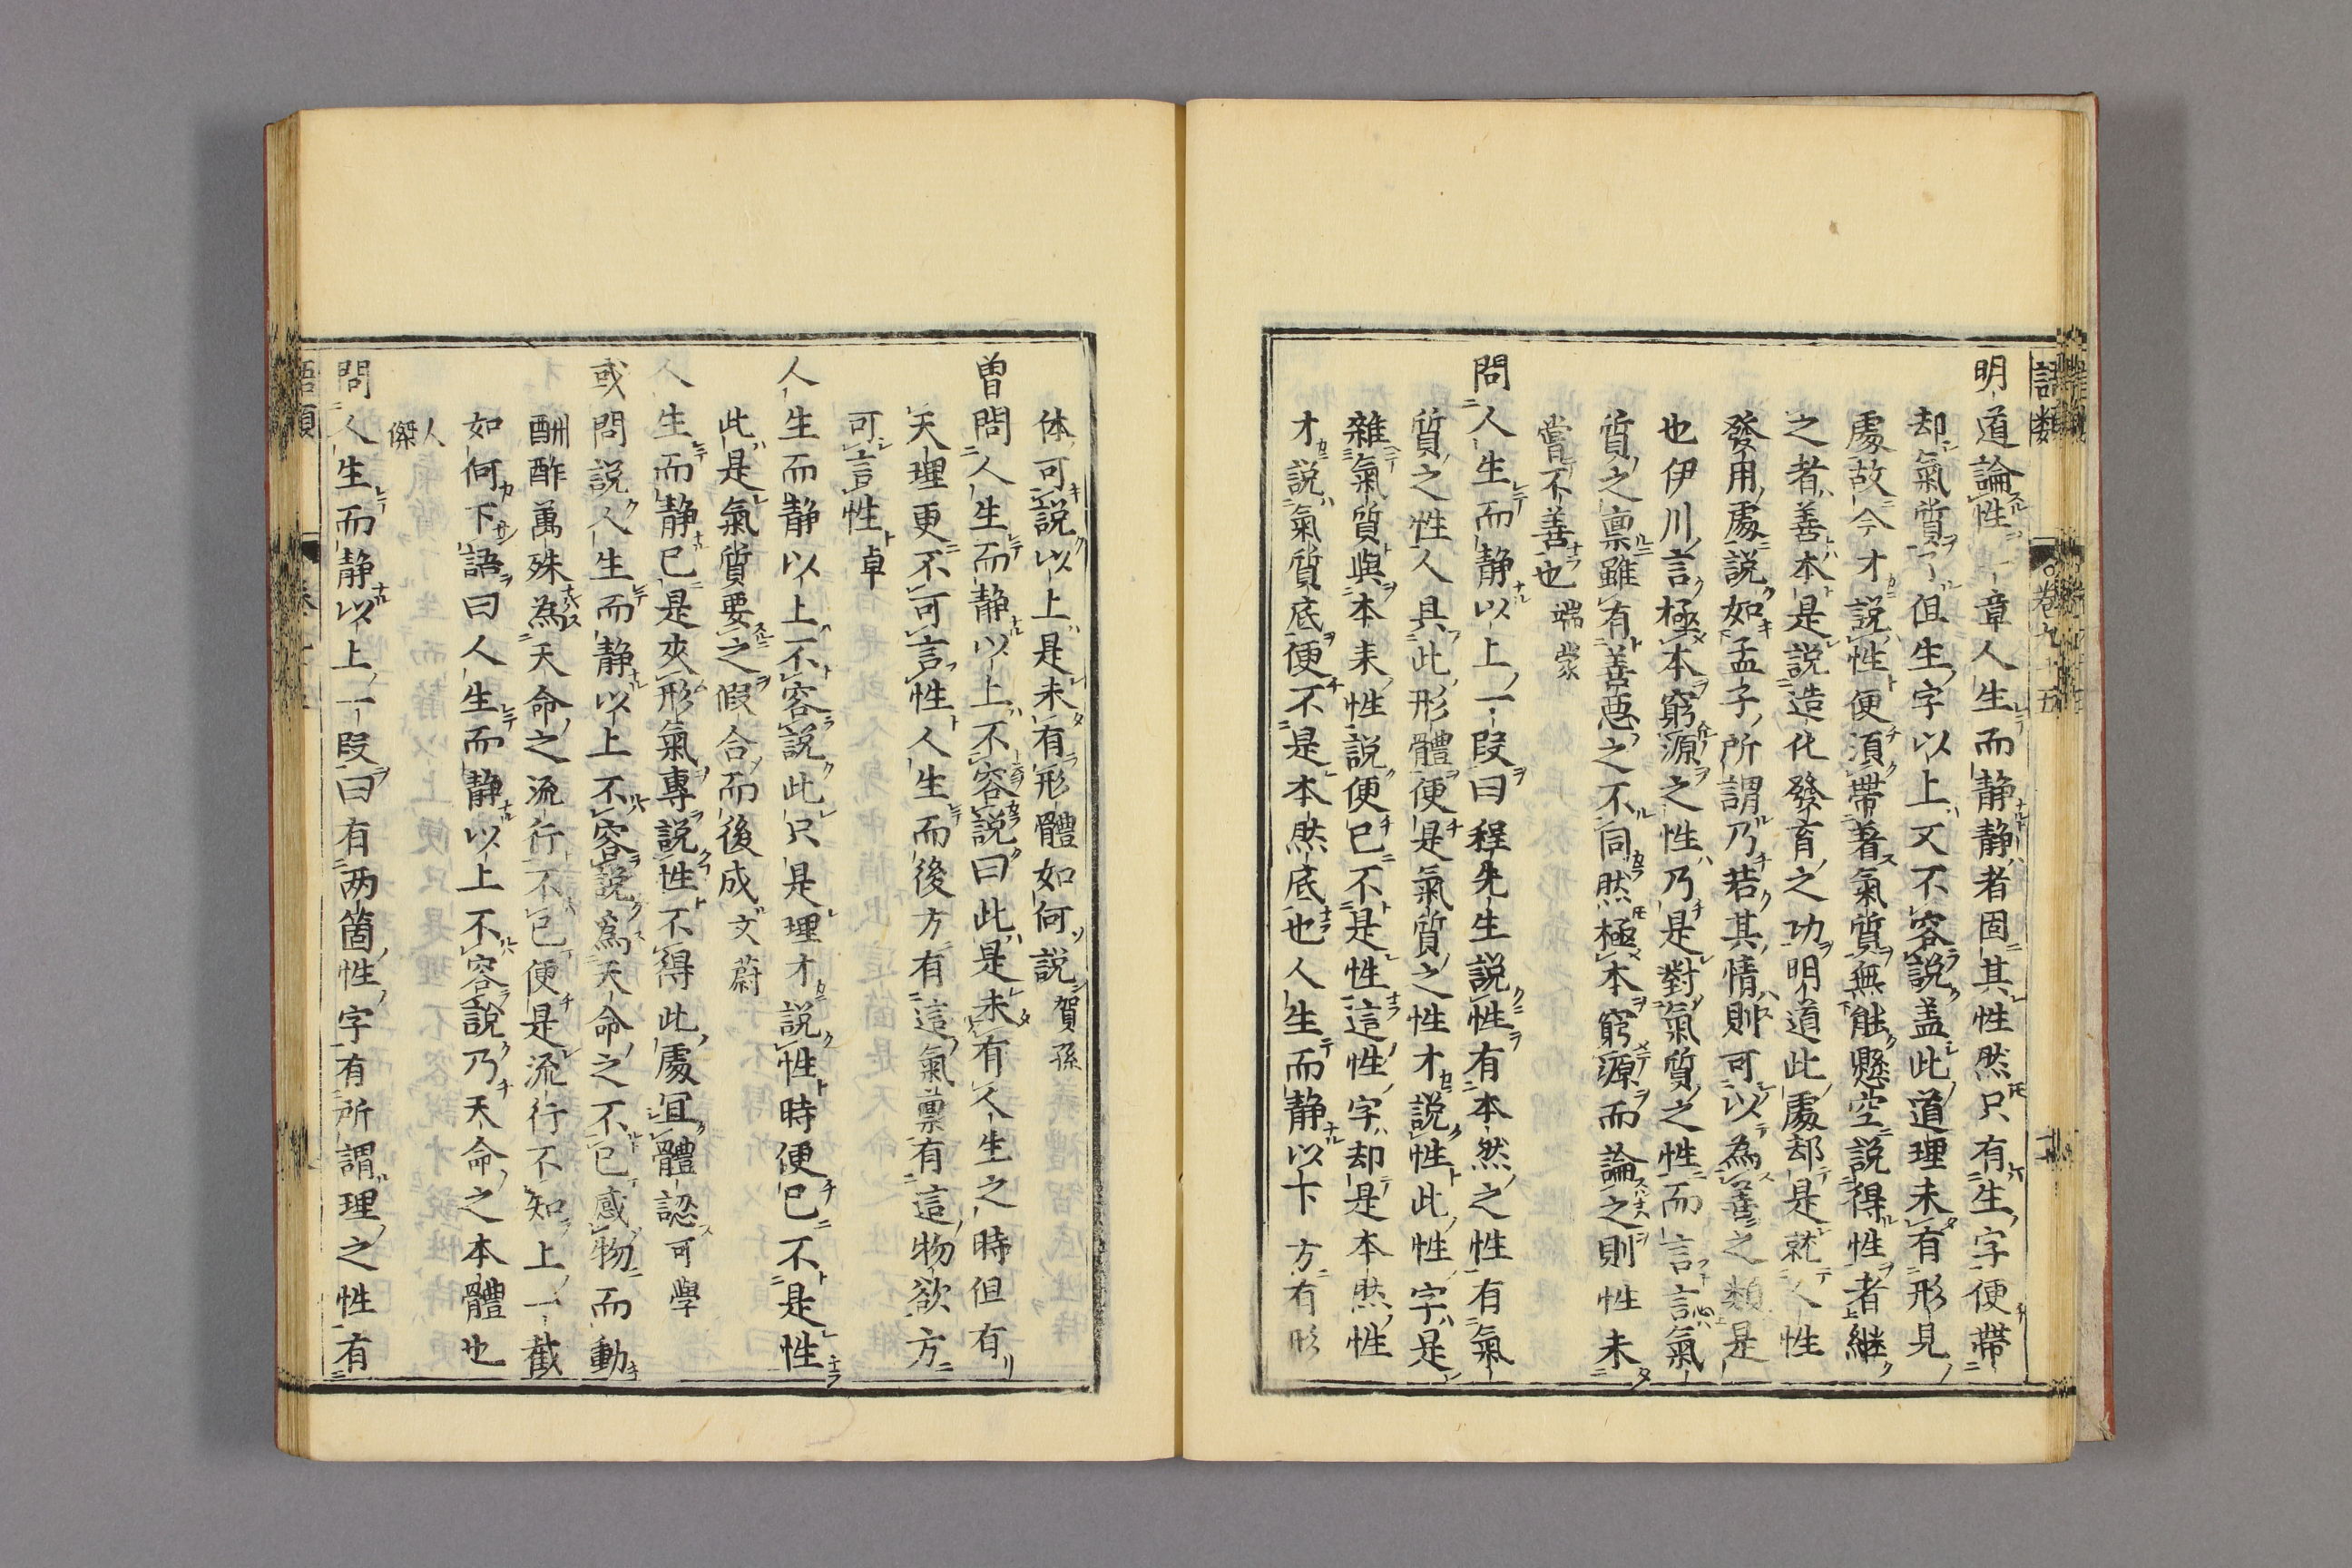 語類　卷九十五
明道論性一章人生而静静者固其性然只有生字便帶
却氣質了但生字以上又不容說盖此道理未有形見
處故今才說性便湏帶著氣質無能懸空說得性者繼
之者善本是說造化發育之功明道此處却是就人性
發用處說如孟子所謂乃若其情則可以為善之類是
也伊川言極本窮源之性乃是對氣質之性而言言氣
質之禀雖有善惡之不同然極本窮源而論之則性未
嘗不善也端蒙
問人生而静以上一段曰程先生說性有本然之性有氣
質之性人具此形體便是氣質之性才說性此性字是
雜氣質與本来性說便已不是性這性字却是本然性
才說氣質底便不是本然底也人生而静以下方有形
体可說以上是未有形體如何說賀孫
曽問人生而静以上不容說曰此是未有人生之時但有
天理更不可言性人生而後方有這氣禀有這物欲方
可言性卓
人生而静以上不容說此只是理才說性時便已不是性
此是氣質要之假合而後成文蔚
人生而静已是夾形氣專說性不得此處冝體認可學
或問說人生而静以上不容說為天命之不已感物而動
酬酢萬殊為天命之流行不已便是流行不知上一截
如何下語曰人生而静以上不容說乃天命之本體也
人傑
問人生而静以上一段曰有两箇性字有所謂理之性有